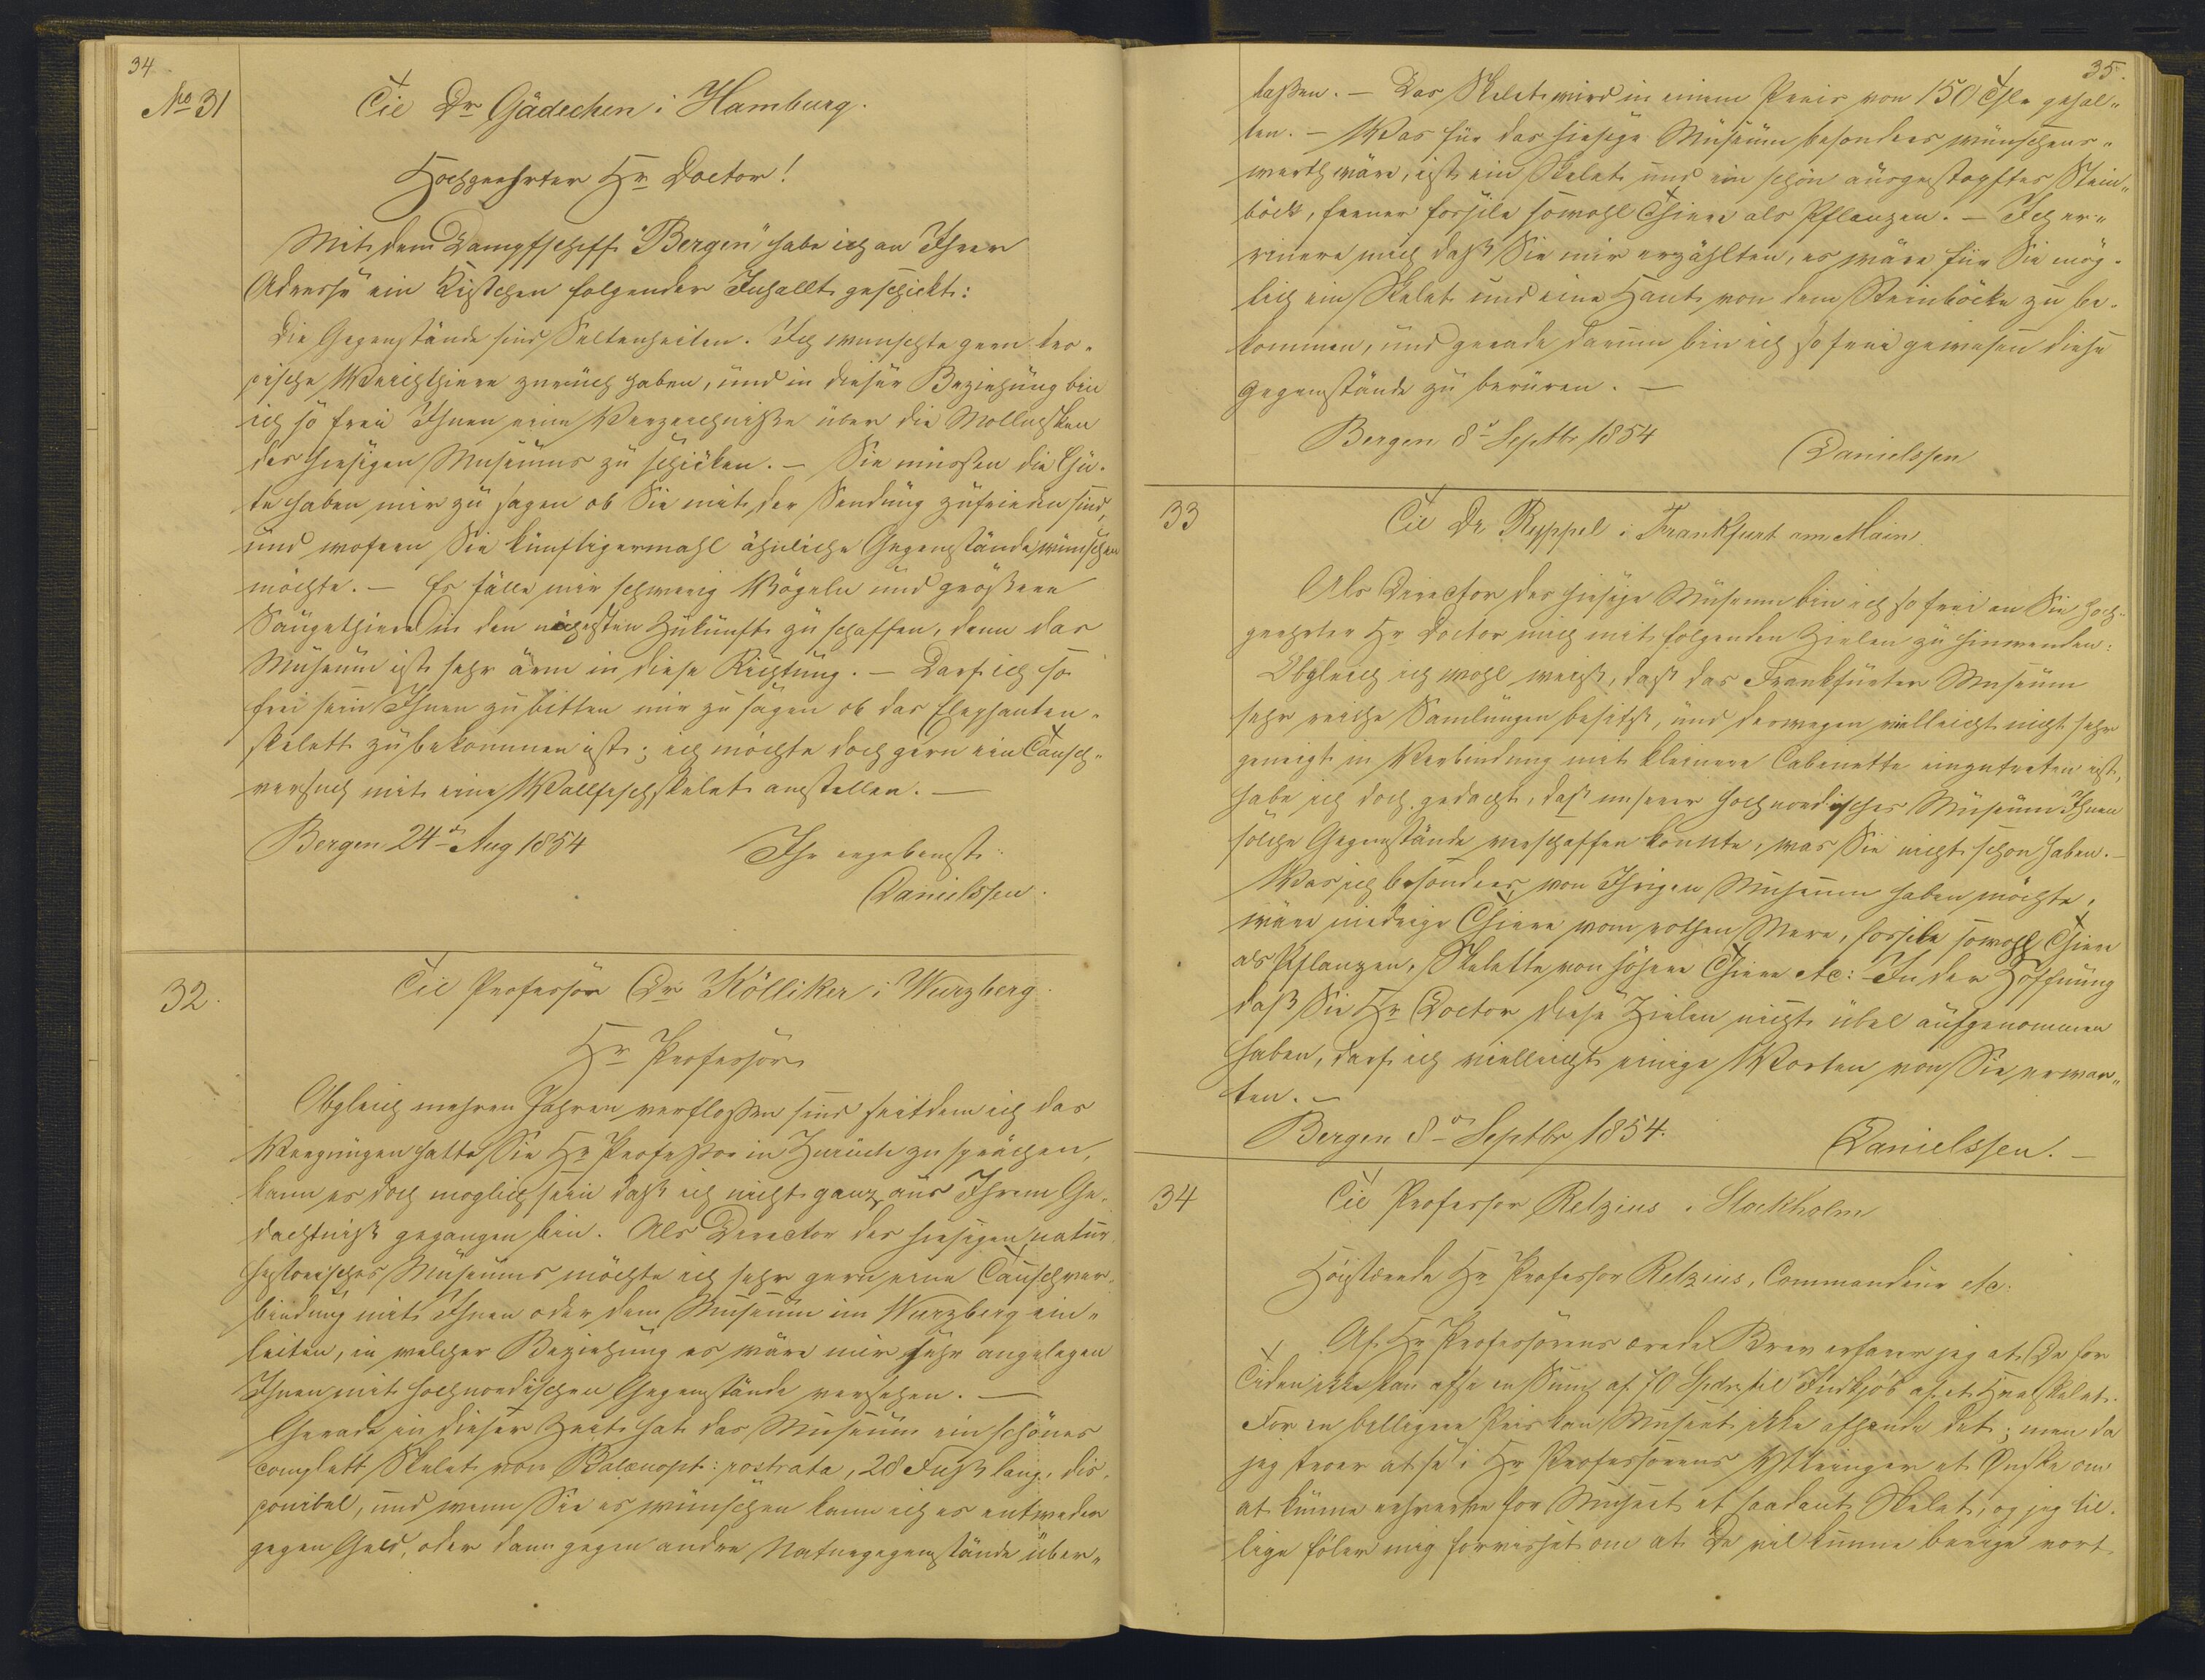 34
No 31
Til Dr Gädechen i Hamburg.
Hochgeehrter Hr Doctor!
Mit dem Dampfschiff "Bergen" habe ich an Ihrer
Adresse ein Kistchen folgender Inhallt geschickt:
Die Gegenstände sind Seltenheiten. Ich wunschte gern tro-
pische Weichthiere zurück haben, und in dieser Beziehung bin
ich so frei Ihnen eine Verzeichnisse über die Mollusken
des hiesigen Museums zu schicken. – Sie müssen die Gü-
te haben mir zu sagen ob Sie mit der Sendung zufrieden sind,
und wofern Sie künftigermahl ähnliche Gegenstände wünschen
möchte. – Es fälle mir schwerig Vögeln und grössere
Säugethiere in den nächsten Zukunft zu schaffen, denn das
Museum ist sehr ärm in diese Richtung. – Darf ich so
frei sein Ihnen zu bitten mir zu sagen ob das Elephanten-
skelett zu bekommen ist; ich möchte doch gern ein Tausch-
versuch mit eine Wallfischskelet anstellen. –
Bergen 24de Aug 1854
Ihr ergebenst
Danielssen.
32.
Til Professor Dr Kölliker i Wurzberg.
Hr Professor
Obgleich mehren Jahren verflossen sind seitdem ich das
Vergnügen hatte Sie Hr Professor in Zurück zu sprächen,
kann es doch moglich sein dass ich nicht ganz aus Ihrem Ge-
dachtniss gegangen bin. Als Director des hiesigen natur-
historisches Museums möchte ich sehr gern eine Tauschver-
bindung mit Ihnen oder dem Museum im Wurzberg ein-
leiten, in welcher Beziehung es wäre mir sehr angelegen
Ihnen mit hochnordischen Gegenstände versehen. –
Gerade in dieser Zeit hat das Museum ein schönes
complett Skelet von Balænopt: rostrata, 28 Fuss lang, dis-
ponibel, und wenn Sie es wünschen kann ich es entweder
gegen Geld, oder dann gegen andre Naturgegenstände über-
35.
lassen. – Das Skelet wird in einem Preis von 150 Thlr gehal-
ten. – Was für das hiesige Museum besonders wünschens-
werth wäre, ist ein Skelet und ein schön ausgestopftes Stein-
bock, ferner fossile sowohl Thiere als Pflanzen. – Ich er-
rinere mich dass Sie mir erzählten, es wäre für Sie mög-
lich ein Skelet und eine Haut von dem Steinbocke zu be-
kommen, und gerade darum bin ich so frei gewesen diese
Gegenstände zu berüren. –
Bergen 8de Septbr 1854
Danielssen
33
Til Dr Ryppel i Frankfurt am Main
Als Director des hiesige Museum bin ich so frei an Sie hoch-
geehrter Hr Doctor mich mit folgenden Zielen zu hinwenden:
Obgleich ich wohl weiss, dass das Frankfurter Museum
sehr reiche Samlungen besitzt, und deswegen vielleicht nicht sehr
geneigt in Verbindung mit kleinere Cabinette einzutreten ist,
habe ich doch gedacht, dass unserer hochnordisches Museum Ihnen
solche Gegenstände verschaffen konnte, was Sie nicht schon haben. –
Was ich besonders von Ihrigen Museum haben möchte,
wäre niedrige Thiere vom rothen Mere, fossile sowohl Thiere
als Pflanzen, Skelette von höhere Thiere etc: In der Hoffnung
dass Sie Hr Doctor diese Zielen nicht übel aufgenommen
haben, darf ich vielleicht einige Worten von Sie erwar-
ten. –
Bergen 8de Septbr 1854.
Danielssen. –
34
Til Professor Retzius i Stockholm
Höistærede Hr Professor Retzius, Commandeur etc:
Af Hr Professorens ærede Brev erfarer jeg at De for
Tiden ikke kan afse en Sum af 70 Spdr til Indkjöb af et Hvalskelet.
For en billigere Pris kan Museet ikke afhænde det; men da
jeg troer at se i Hr Professorens Yttringer et Ønske om
at kunne erhverve for Museet et saadant Skelet, og jeg til-
lige föler mig forvisset om at De vil kunne berige vort